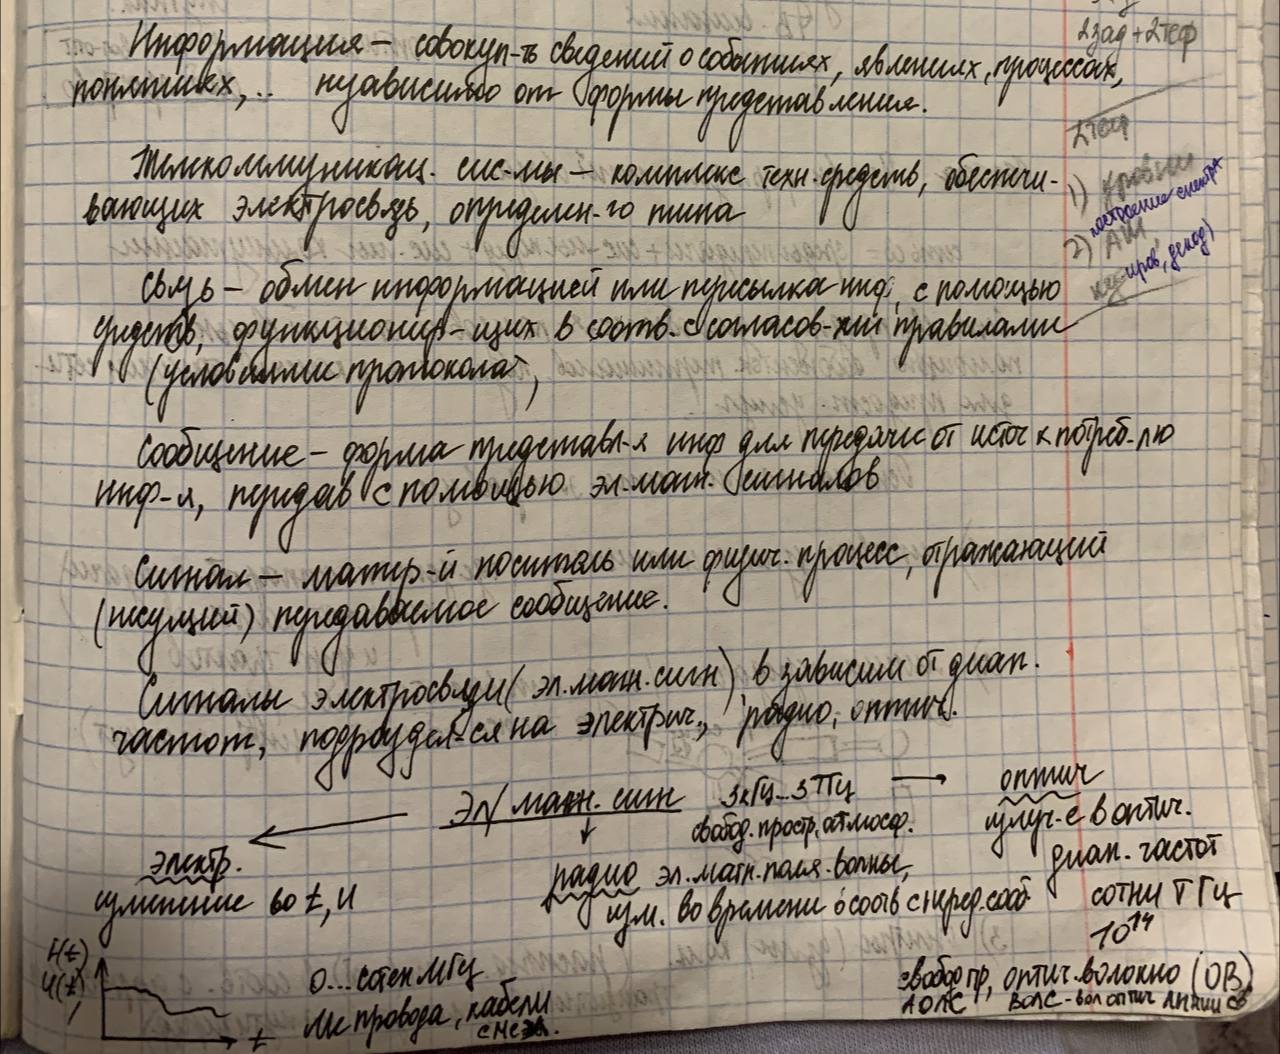 2зад + 2теф
Информация – совокуп-ть сведений о событиях, явлениях, процессах,
понятиях, .. независимо от формы представления.
2теф
Телекоммуникац. сис-мы – комплекс техн. средств, обеспечи-
вающих электросвязь, определен-го типа
1) Уровни
построение спектра
2) АИМ
Связь – обмен информацией или пересылка инф. с помощью
средств, функционир-щих в соотв. с согласов-ми правилами
(условиями протокола),
Сообщение – форма представл-я инф для передачи от источ к потреб-лю
инф-я, передав с помощью эл.магн. сигналов
Сигнал – матер-й носитель или физич. процесс, отражающий
(несущий) передаваемое сообщение.
Сигналы электросвязи (эл.магн.сигн) в зависим от диап.
частот, подразделя-ся на электрич., радио, оптич.
Эл/магн. сигн
3кГц...3ТГц
свобод. простр, атмосф.
оптич
излуч-е в оптич.
диап. частот
сотни ТГц
10¹⁴
электр.
изменение во t, И
радио эл.магн.поля. волны,
изм. во времени в соотв с перед. сооб
I(t)
U(t)
t
0...сотен МГц
провода, кабели
свобод пр, оптич. волокно (ОВ)
АОЛС ВОЛС – вол оптич линии св